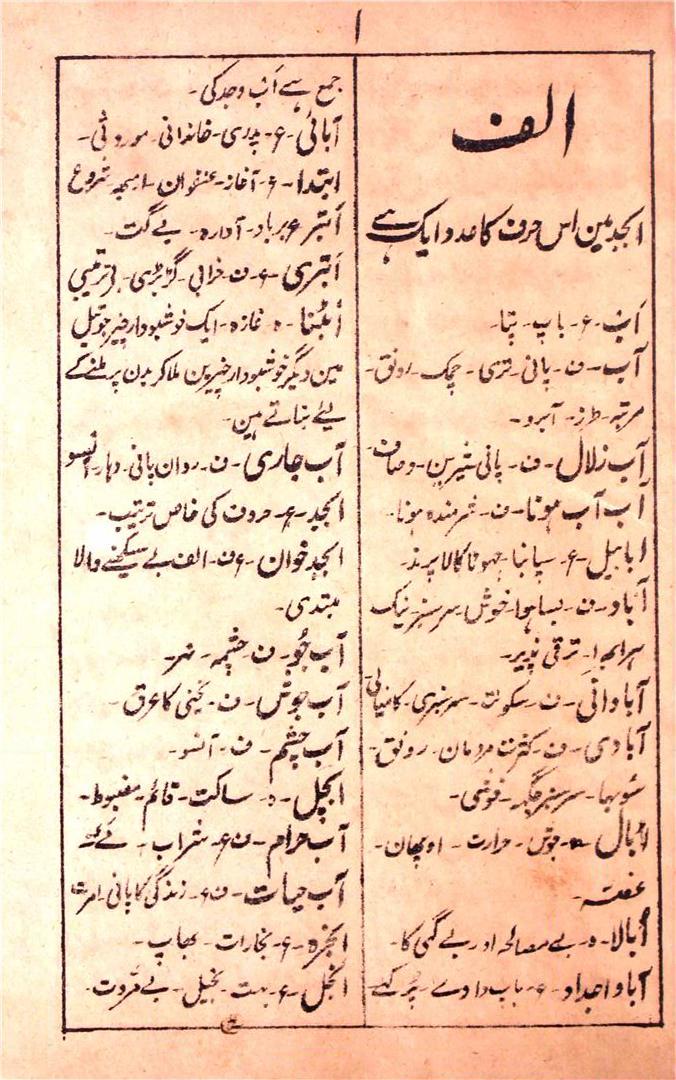 ۱
الف
ابجد مین اس حرف کا عدد ایک ہے
اَب۔ ع۔ باپ۔ پتا۔
آب۔ ف۔ پانی۔ تری۔ چمک۔ رونق۔
مرتبہ۔ طرز۔ آبرو۔
آب زلال۔ ف۔ پانی شیرین۔ وصاف
آب آب ہونا۔ ف۔ شرمندہ ہونا۔
ابابیل۔ ع۔ چھوٹا کالا پرند۔
آباد۔ ف۔ بسا ہوا۔ خوش۔ سرسبز۔ نیک
ہرا بھرا۔ ترقی پذیر۔
آبادانی۔ ف۔ سکونت۔ سرسبزی۔ کامیابی
آبادی۔ ف۔ کثرت مردمان۔ رونق۔
سرسبز جگہ۔
اُبال۔ ہ۔ جوش۔ حرارت۔ اوپھان۔
غصہ۔
اُبالا۔ ہ۔ بے مصالحہ اور بے گھی کا۔
آبا و اجداد۔ ع۔ باپ دادے۔
جمع ہے اَب و جد کی۔
آبائی۔ ع۔ پدری۔ خاندانی۔ موروثی۔
ابتدا۔ ع۔ آغاز۔ عنفوان۔ شروع
اَبتر۔ ع۔ برباد۔ آوارہ۔ بے گت۔
اَبتری۔ ع۔ ف۔ خرابی۔ گڑبڑی۔ بےترتیبی
اُبٹنا۔ ہ۔ غازہ۔ ایک خوشبودار چیز جو تیل
مین دیگر خوشبودار چیزین ملا کر بدن پر ملنے کے
لیئے بناتے مین۔
آب جاری۔ ف۔ روان پانی۔ دہار۔ آنسو
ابجد۔ ع۔ حروف کی خاص ترتیب۔
ابجد خوان۔ ع ف۔ الف بے سیکھنے والا
مبتدی۔
آب جُو۔ ف۔ چشمہ۔ نہر۔
آب جوش۔ ف۔ یخنی کا عرق۔
آب چشم۔ ف۔ آنسو۔
ابچل۔ ہ۔ ساکت۔ قائم۔ مضبوط۔
آب حرام۔ ف ع۔ شراب۔
آب حیات۔ ف ع۔ زندگی کا پانی۔ امرت
ابخرہ۔ ع۔ بخارات۔ بھاپ۔
ابخل۔ ع۔ بہت بخیل۔ بے مُروت۔